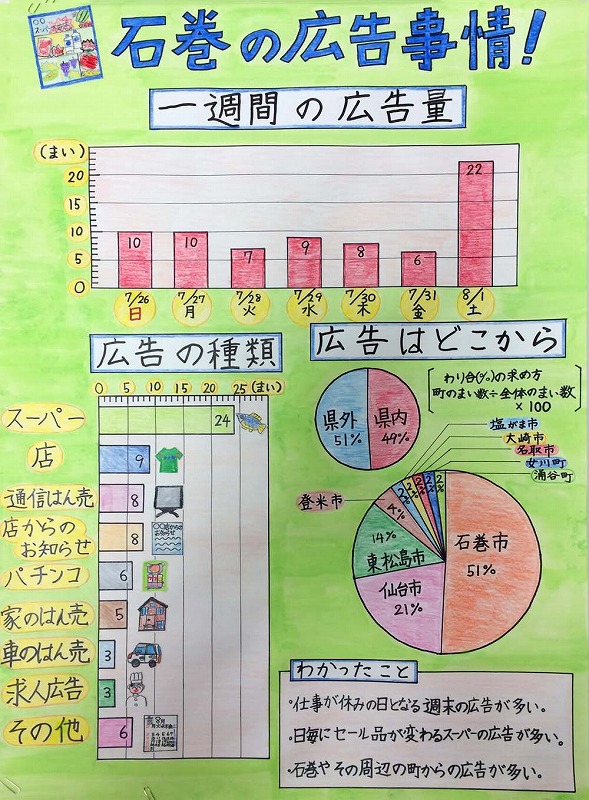 石巻の広告事情!
一週間の広告量
(まい)
20
15
10
5
0
10
10
7
9
8
6
22
7/26
7/27
7/28
7/29
7/30
7/31
8/1
日
月
火
水
木
金
土
広告の種類
0 5 10 15 20 25(まい)
スーパー
24
店
9
通信はん売
8
店からの
お知らせ
8
パチンコ
6
家のはん売
5
車のはん売
3
求人広告
3
その他
6
広告はどこから
県外
51%
県内
49%
わり合(%)の求め方
町のまい数÷全体のまい数
×100
塩がま市
大崎市
名取市
女川町
涌谷町
登米市
4%
2%
2%
2%
2%
2%
14%
東松島市
仙台市
21%
石巻市
51%
わかったこと
・仕事が休みの日となる週末の広告が多い。
・日毎にセール品が変わるスーパーの広告が多い。
・石巻やその周辺の町からの広告が多い。